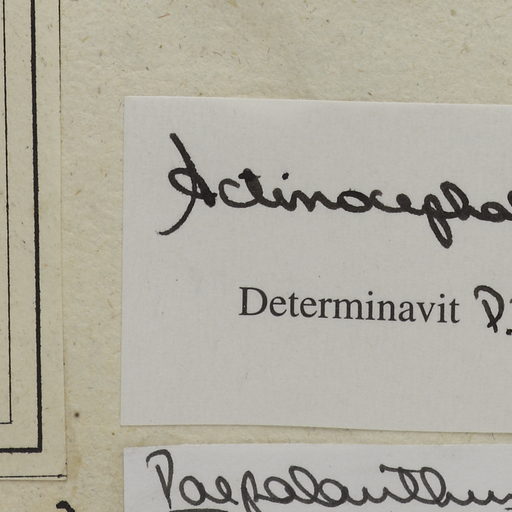 Actinocepha
Determinavit P.
Paepalanthus